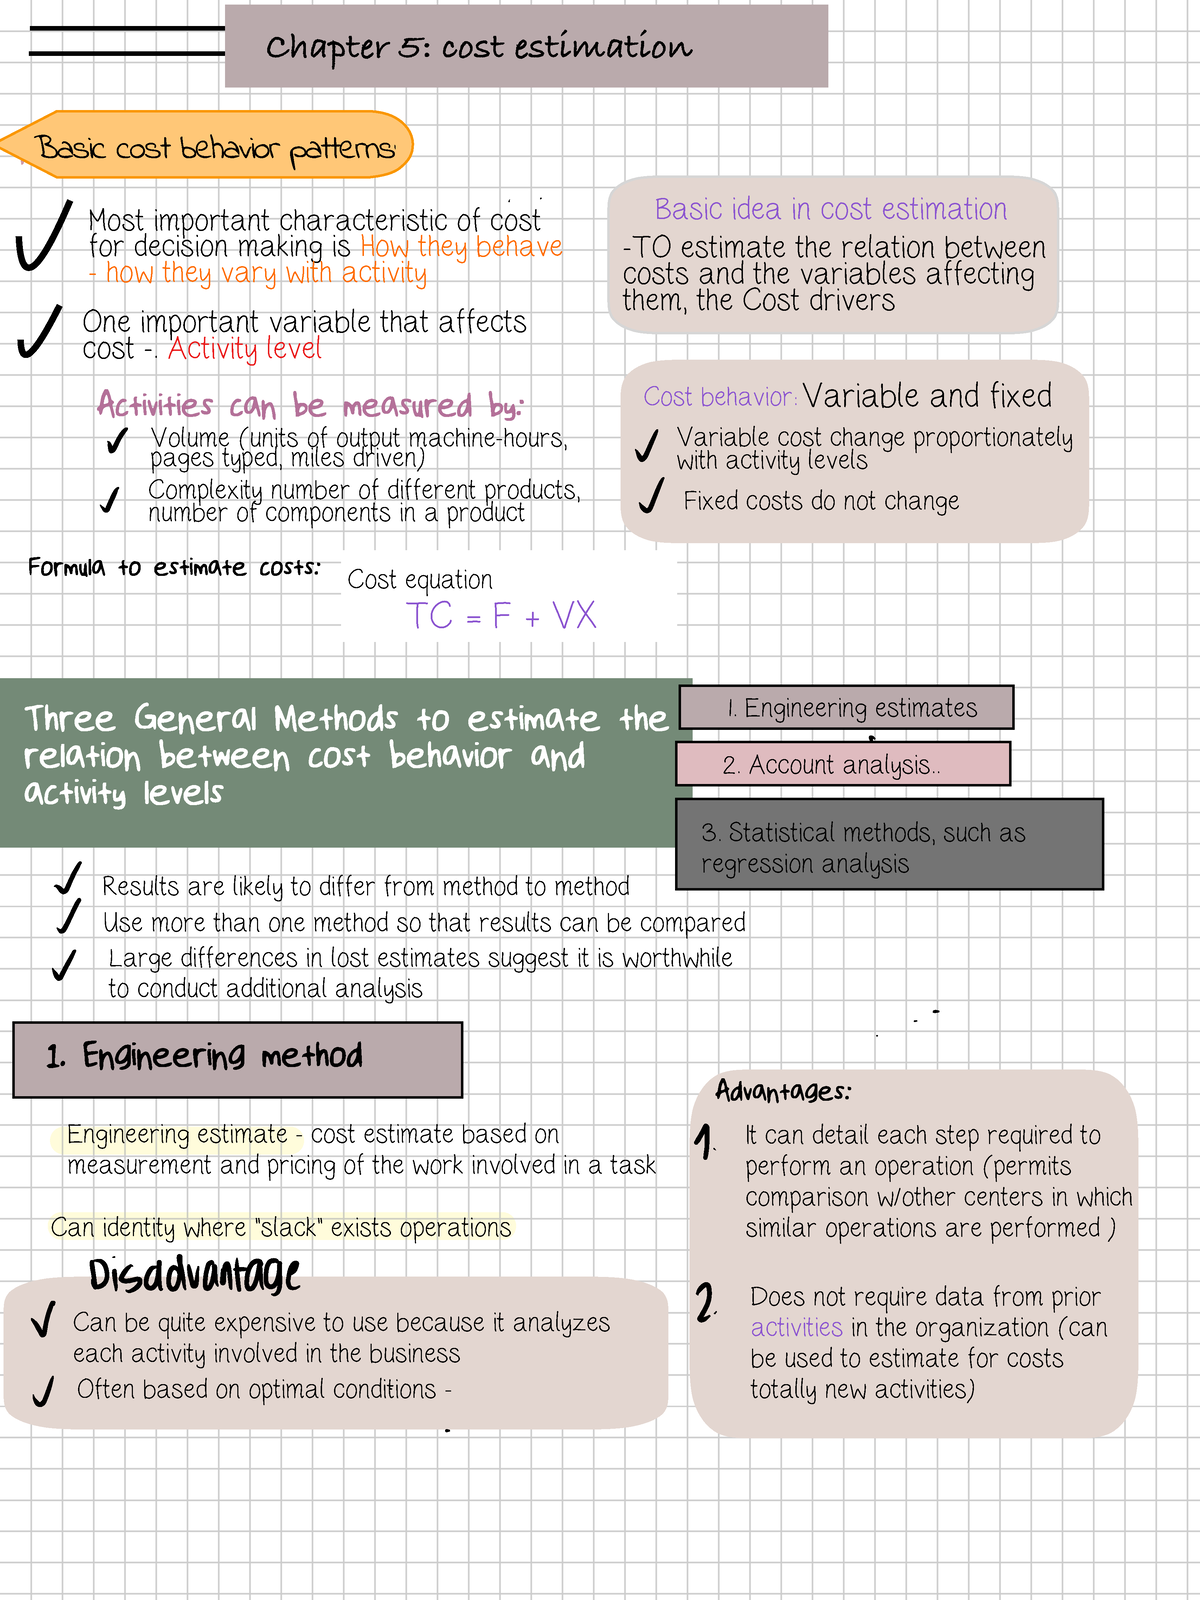 Chapter 5: cost estimation
Basic cost behavior patterns
Most important characteristic of cost
for decision making is How they behave
- how they vary with activity
One important variable that affects
cost -. Activity level
Basic idea in cost estimation
-TO estimate the relation between
costs and the variables affecting
them, the Cost drivers
Activities can be measured by:
Volume (units of output machine-hours,
pages typed, miles driven)
Complexity number of different products,
number of components in a product
Cost behavior: Variable and fixed
Variable cost change proportionately
with activity levels
Fixed costs do not change
Formula to estimate costs:
Cost equation
TC = F + VX
Three General Methods to estimate the
relation between cost behavior and
activity levels
1. Engineering estimates
2. Account analysis..
3. Statistical methods, such as
regression analysis
Results are likely to differ from method to method
Use more than one method so that results can be compared
Large differences in lost estimates suggest it is worthwhile
to conduct additional analysis
1. Engineering method
Engineering estimate - cost estimate based on
measurement and pricing of the work involved in a task
Can identity where "slack" exists operations
Disadvantage
Can be quite expensive to use because it analyzes
each activity involved in the business
Often based on optimal conditions -
Advantages:
1. It can detail each step required to
perform an operation (permits
comparison w/other centers in which
similar operations are performed )
2. Does not require data from prior
activities in the organization (can
be used to estimate for costs
totally new activities)